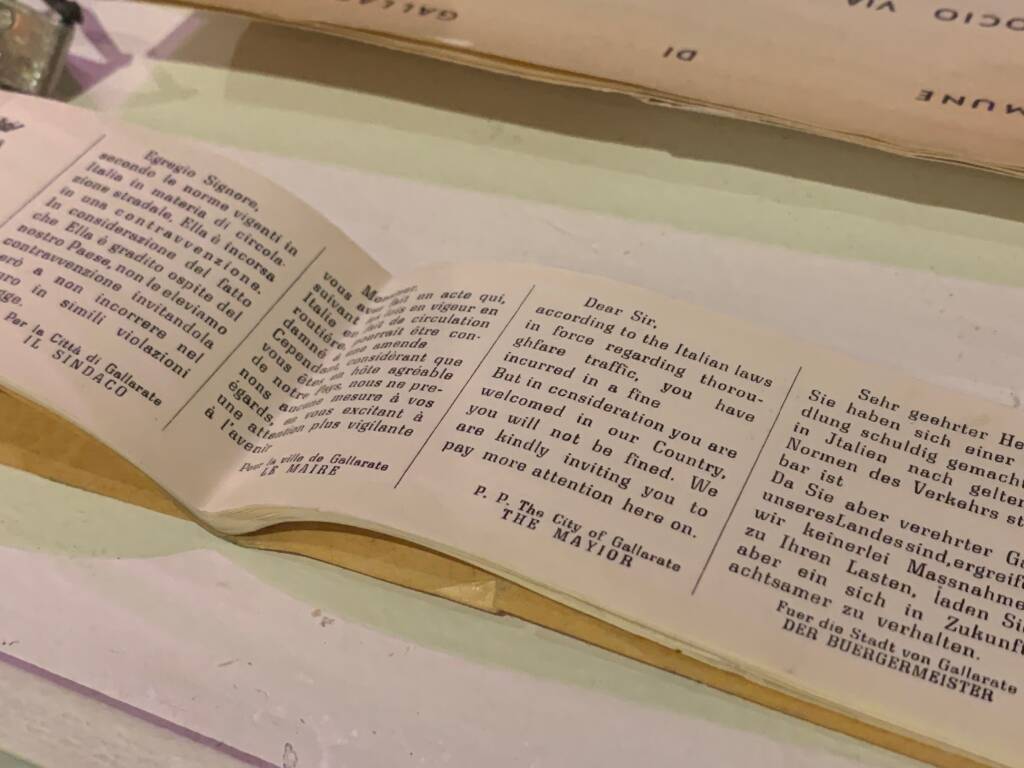 GALLA
DI
OCIO VIA
MUNE
Egregio Signore,
secondo le norme vigenti in
Italia in materia di circola-
zione stradale, Ella è incorsa
in una contravvenzione.
In considerazione del fatto
che Ella è gradito ospite del
nostro Paese, non le eleviamo
contravvenzione invitandola
erò a non incorrere nel
uro in simili violazioni
ge.
Per la Città di Gallarate
IL SINDACO
vous avez fait un acte qui,
suivant lois en vigeur en
Italie en fait de circulation
routière, pourrait être con-
damné à une amende
Cependant, considérant que
vous êtes un hôte agréable
de notre Pays, nous ne pre-
nons aucune mesure à vos
égards, en vous excitant à
une attention plus vigilante
à l'avenir
Pour la ville de Gallarate
LE MAIRE
Dear Sir,
according to the Italian laws
in force regarding thorou-
ghfare traffic, you have
incurred in a fine
But in consideration you are
welcomed in our Country,
you will not be fined. We
are kindly inviting you to
pay more attention here on.
P. P. The City of Gallarate
THE MAYIOR
Sehr geehrter He
Sie haben sich einer
dlung schuldig gemacht
in Jtalien nach gelten
Normen des Verkehrs st
bar ist
Da Sie aber verehrter Ga
unseresLandessind,ergreife
wir keinerlei Massnahme
zu Ihren Lasten, laden Si
aber ein sich in Zukunft
achtsamer zu verhalten.
Fuer die Stadt von Gallarate
DER BUERGERMEISTER